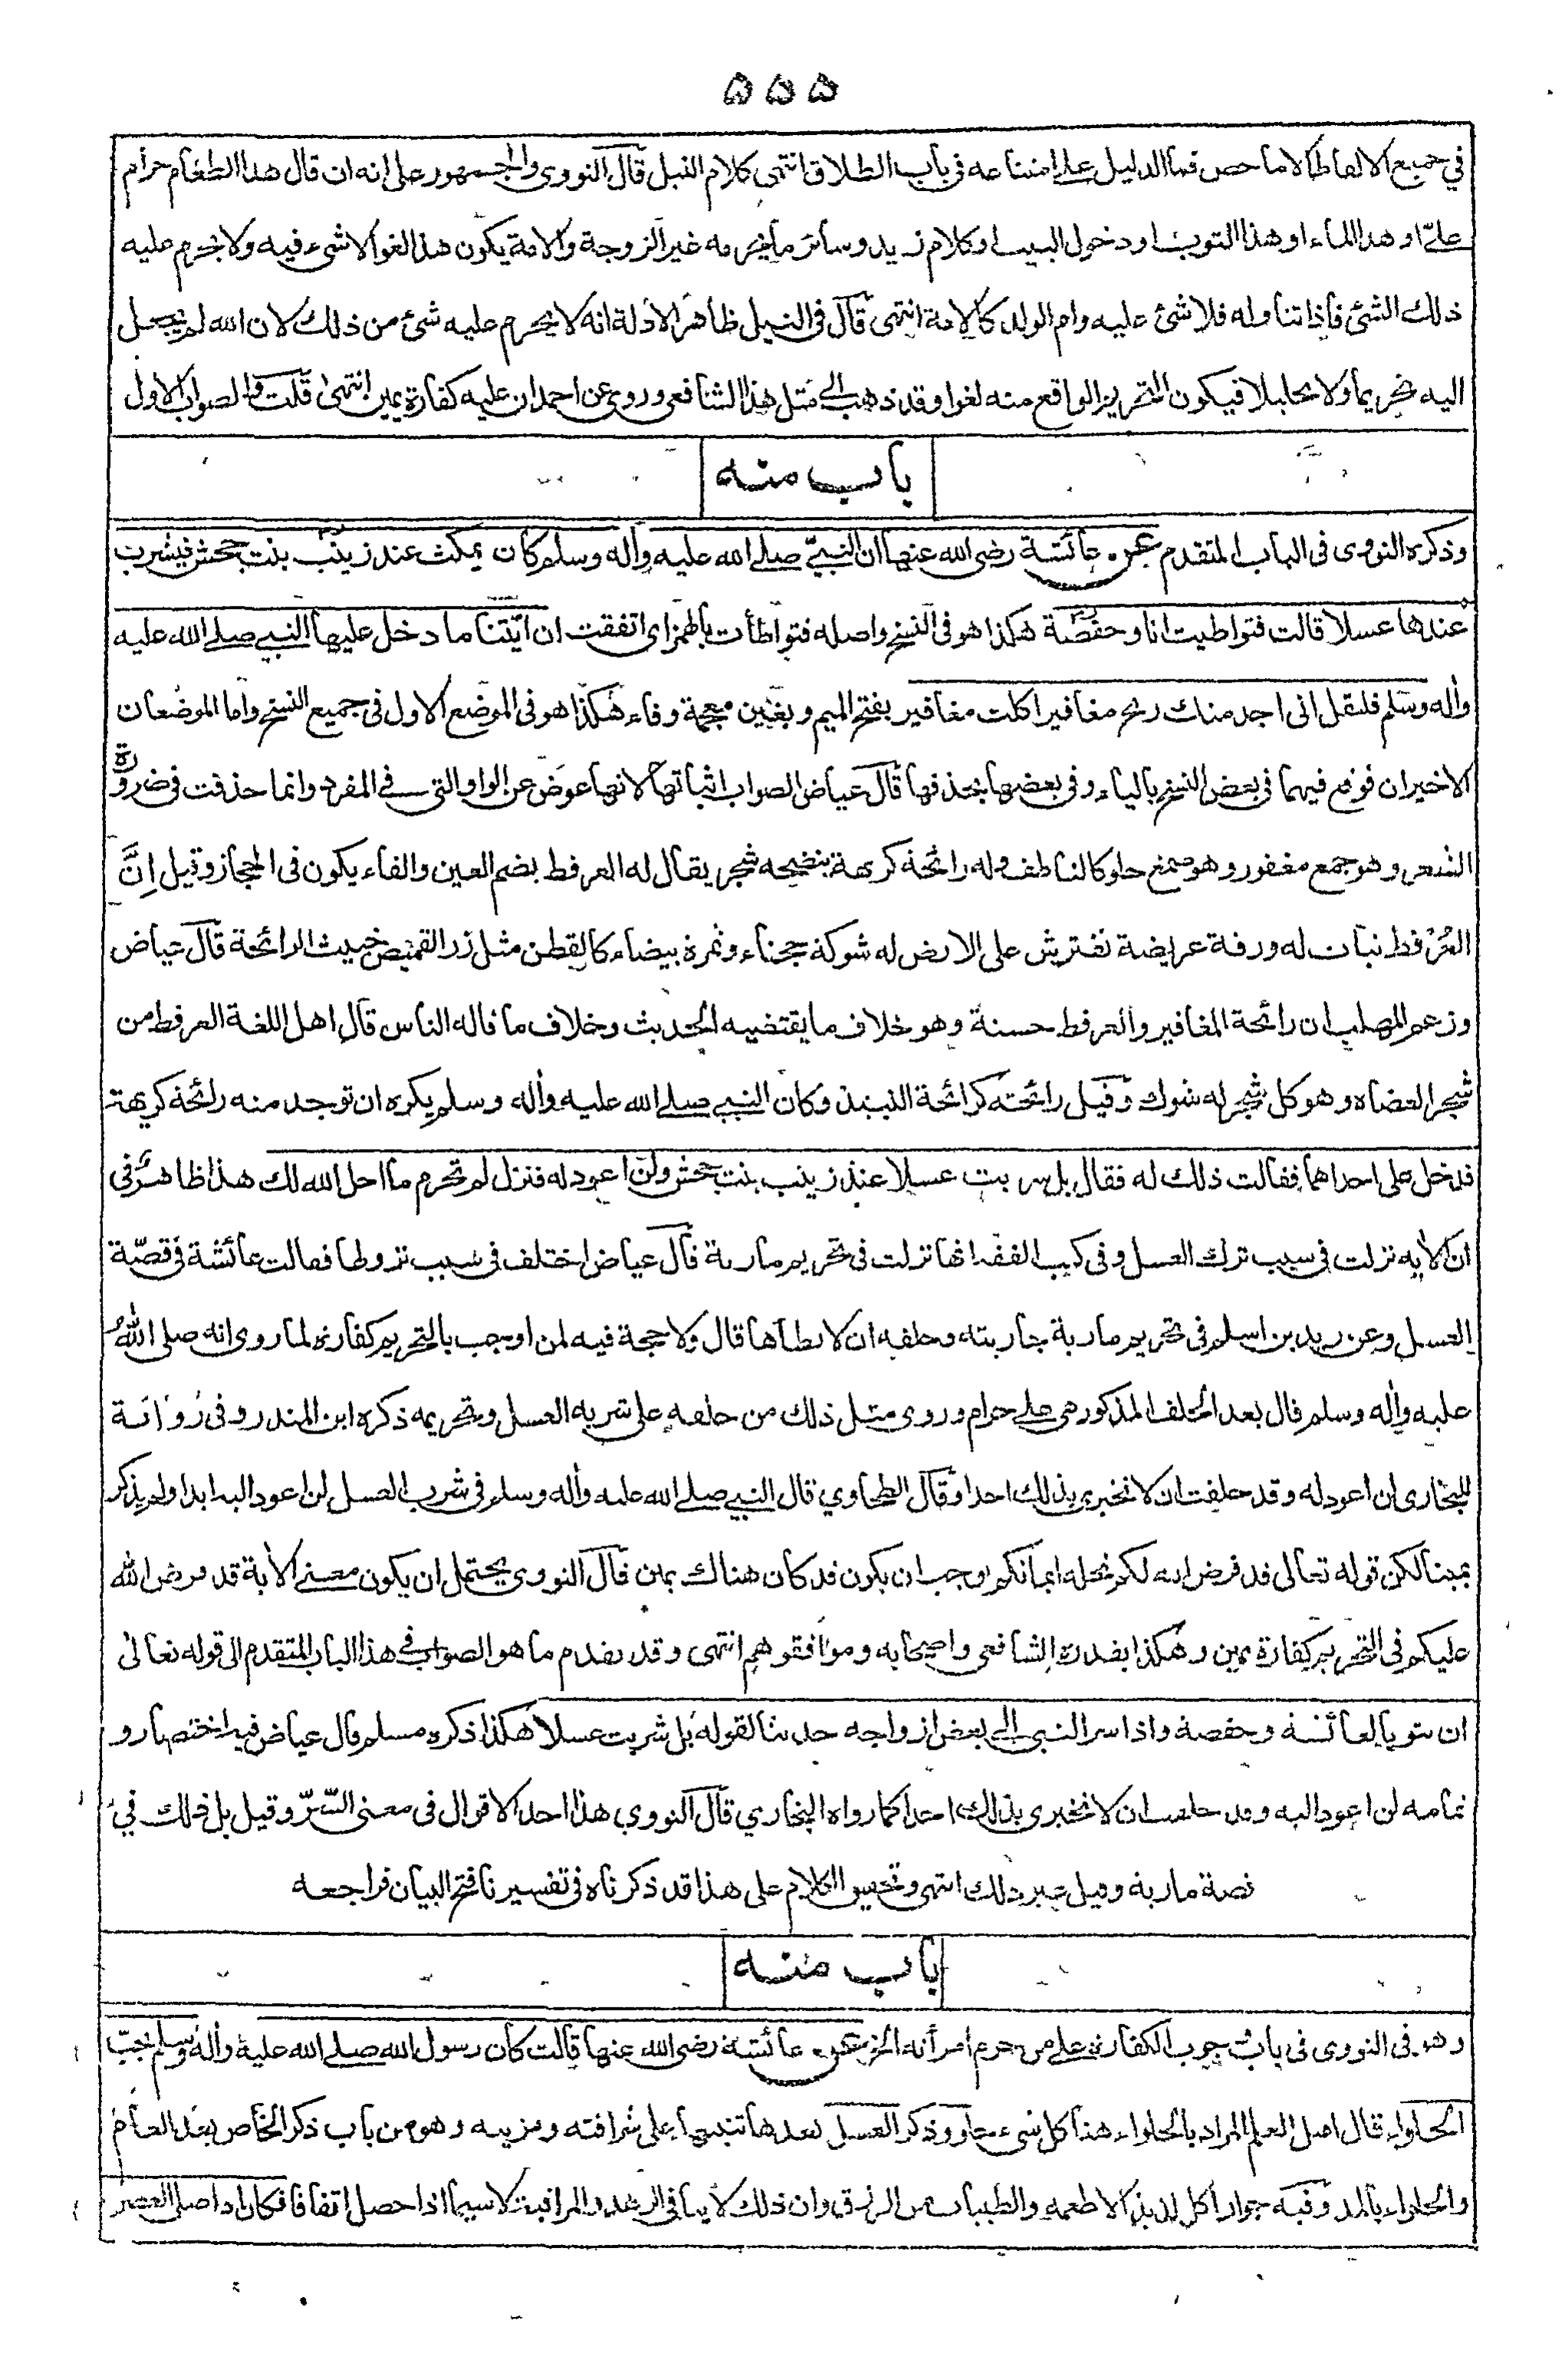 ۵۵۵
في جميع الالفاظ الا ما خص فما الدليل على امتناعه فى باب الطلاق انتهى كلام النبل قال النووى والجمهور على انه ان قال هذا الطعام حرام
علىّ او هذا الماء او هذا الثوب او دخول البيت او كلام زيد وسائر ما يحرمه غير الزوجة والامة يكون هذا لغوا لا شىء فيه ولا يحرم عليه
ذلك الشئ فاذا تناوله فلا شئ عليه وام الولد كالامة انتهى قال فى النيل ظاهر الادلة انه لا يحرم عليه شئ من ذلك لان الله لم يجعل
اليه تحريما ولا تحليلا فيكون التحريم الواقع منه لغوا وقد ذهب الى مثل هذا الشافعى وروى عن احمد ان عليه كفارة يمين انتهى قلت والصواب الاول
باب منه
وذكره النووى فى الباب المتقدم عن عائشة رضى الله عنها ان النبىّ صلى الله عليه واله وسلم كان يمكث عند زينب بنت جحش فيشرب
عندها عسلا قالت فتواطيت انا وحفصة هكذا هو فى النسخ واصله فتواطأت بالهمز اى اتفقت ان ايّتنا ما دخل عليها النبى صلى الله عليه
واله وسلم فلتقل انى اجد منك ريح مغافير اكلت مغافير بفتح الميم وبغين معجمة وفاء هكذا هو فى الموضع الاول فى جميع النسخ واما الموضعان
الاخيران فوقع فيهما فى بعض النسخ بالياء وفى بعضها بحذفها قال عياض الصواب اثباتها لانها عوض عن الواو التى فى المفرد وانما حذفت فى ضرورة
الشعر وهو جمع مغفور وهو صمغ حلو كالناطف وله رائحة كريهة ينضحه شجر يقال له العرفط بضم العين والفاء يكون فى الحجاز وقيل اِنَّ
العُرْفط نبات له ورقة عريضة تفترش على الارض له شوكة حجناء وثمرة بيضاء كالقطن مثل زر القميص خبيث الرائحة قال عياض
وزعم المهلب ان رائحة المغافير والعرفط حسنة وهو خلاف ما يقتضيه الحديث وخلاف ما قاله الناس قال اهل اللغة العرفط من
شجر العضاه وهو كل شجر له شوك وقيل رائحته كرائحة النبيذ وكان النبى صلى الله عليه واله وسلم يكره ان توجد منه رائحة كريهة
فدخل على احداهما فقالت ذلك له فقال بل شربت عسلا عند زينب بنت جحش ولن اعود له فنزل لم تحرم ما احل الله لك هذا ظاهر فى
ان الاية نزلت فى سبب ترك العسل وفى كتب الفقه انها نزلت فى تحريم مارية قال عياض اختلف فى سبب نزولها فقالت عائشة فى قصّة
العسل وعن زيد بن اسلم فى تحريم مارية جاريته وحلفه ان لا يطأها قال ولا حجة فيه لمن اوجب بالتحريم كفارة لما روى انه صلى الله
عليه واله وسلم قال بعد الحلف المذكور هى على حرام وروى مثل ذلك من حلفه على شربه العسل وتحريمه ذكره ابن المنذر وفى رواية
للبخارى لن اعود له وقد حلفت ان لا تخبرى بذلك احدا وقال الطحاوى قال النبى صلى الله عليه واله وسلم فى شرب العسل لن اعود اليه ابدا ولم يذكر
يمينا لكن قوله تعالى قد فرض الله لكم تحلة ايمانكم يوجب ان يكون قد كان هناك يمين قال النووى يحتمل ان يكون معنى الاية قد فرض الله
عليكم فى التحريم كفارة يمين وهكذا يقدره الشافعى واصحابه وموافقوهم انتهى وقد تقدم ما هو الصواب فى هذا الباب المتقدم الى قوله تعالى
ان تتوبا لعائشة وحفصة واذ اسر النبى الى بعض ازواجه حديثا لقوله بل شربت عسلا هكذا ذكره مسلم قال عياض فيه اختصار و
تمامه لن اعود اليه وقد حلفت ان لا تخبرى بذلك احدا كما رواه البخارى قال النووى هذا احد الاقوال فى معنى السّرّ وقيل بل ذلك فى
قصة مارية وقيل غير ذلك انتهى وتحقيق الكلام على هذا قد ذكرناه فى تفسيرنا فتح البيان فراجعه
باب منه
وهو فى النووى فى باب وجوب الكفارة على من حرم امرأته الخ عن عائشة رضى الله عنها قالت كان رسول الله صلى الله عليه واله وسلم يحبّ
الحلواء قال اهل العلم المراد بالحلواء هنا كل شىء حلو وذكر العسل بعدها تنبيها على شرافته ومزيته وهو من باب ذكر الخاص بعد العام
والحلواء بالمد وفيه جواز اكل لذيذ الاطعمة والطيبات من الرزق وان ذلك لا ينافى الزهد والمراقبة لا سيما اذا حصل اتفاقا فكان اذا صلى العصر